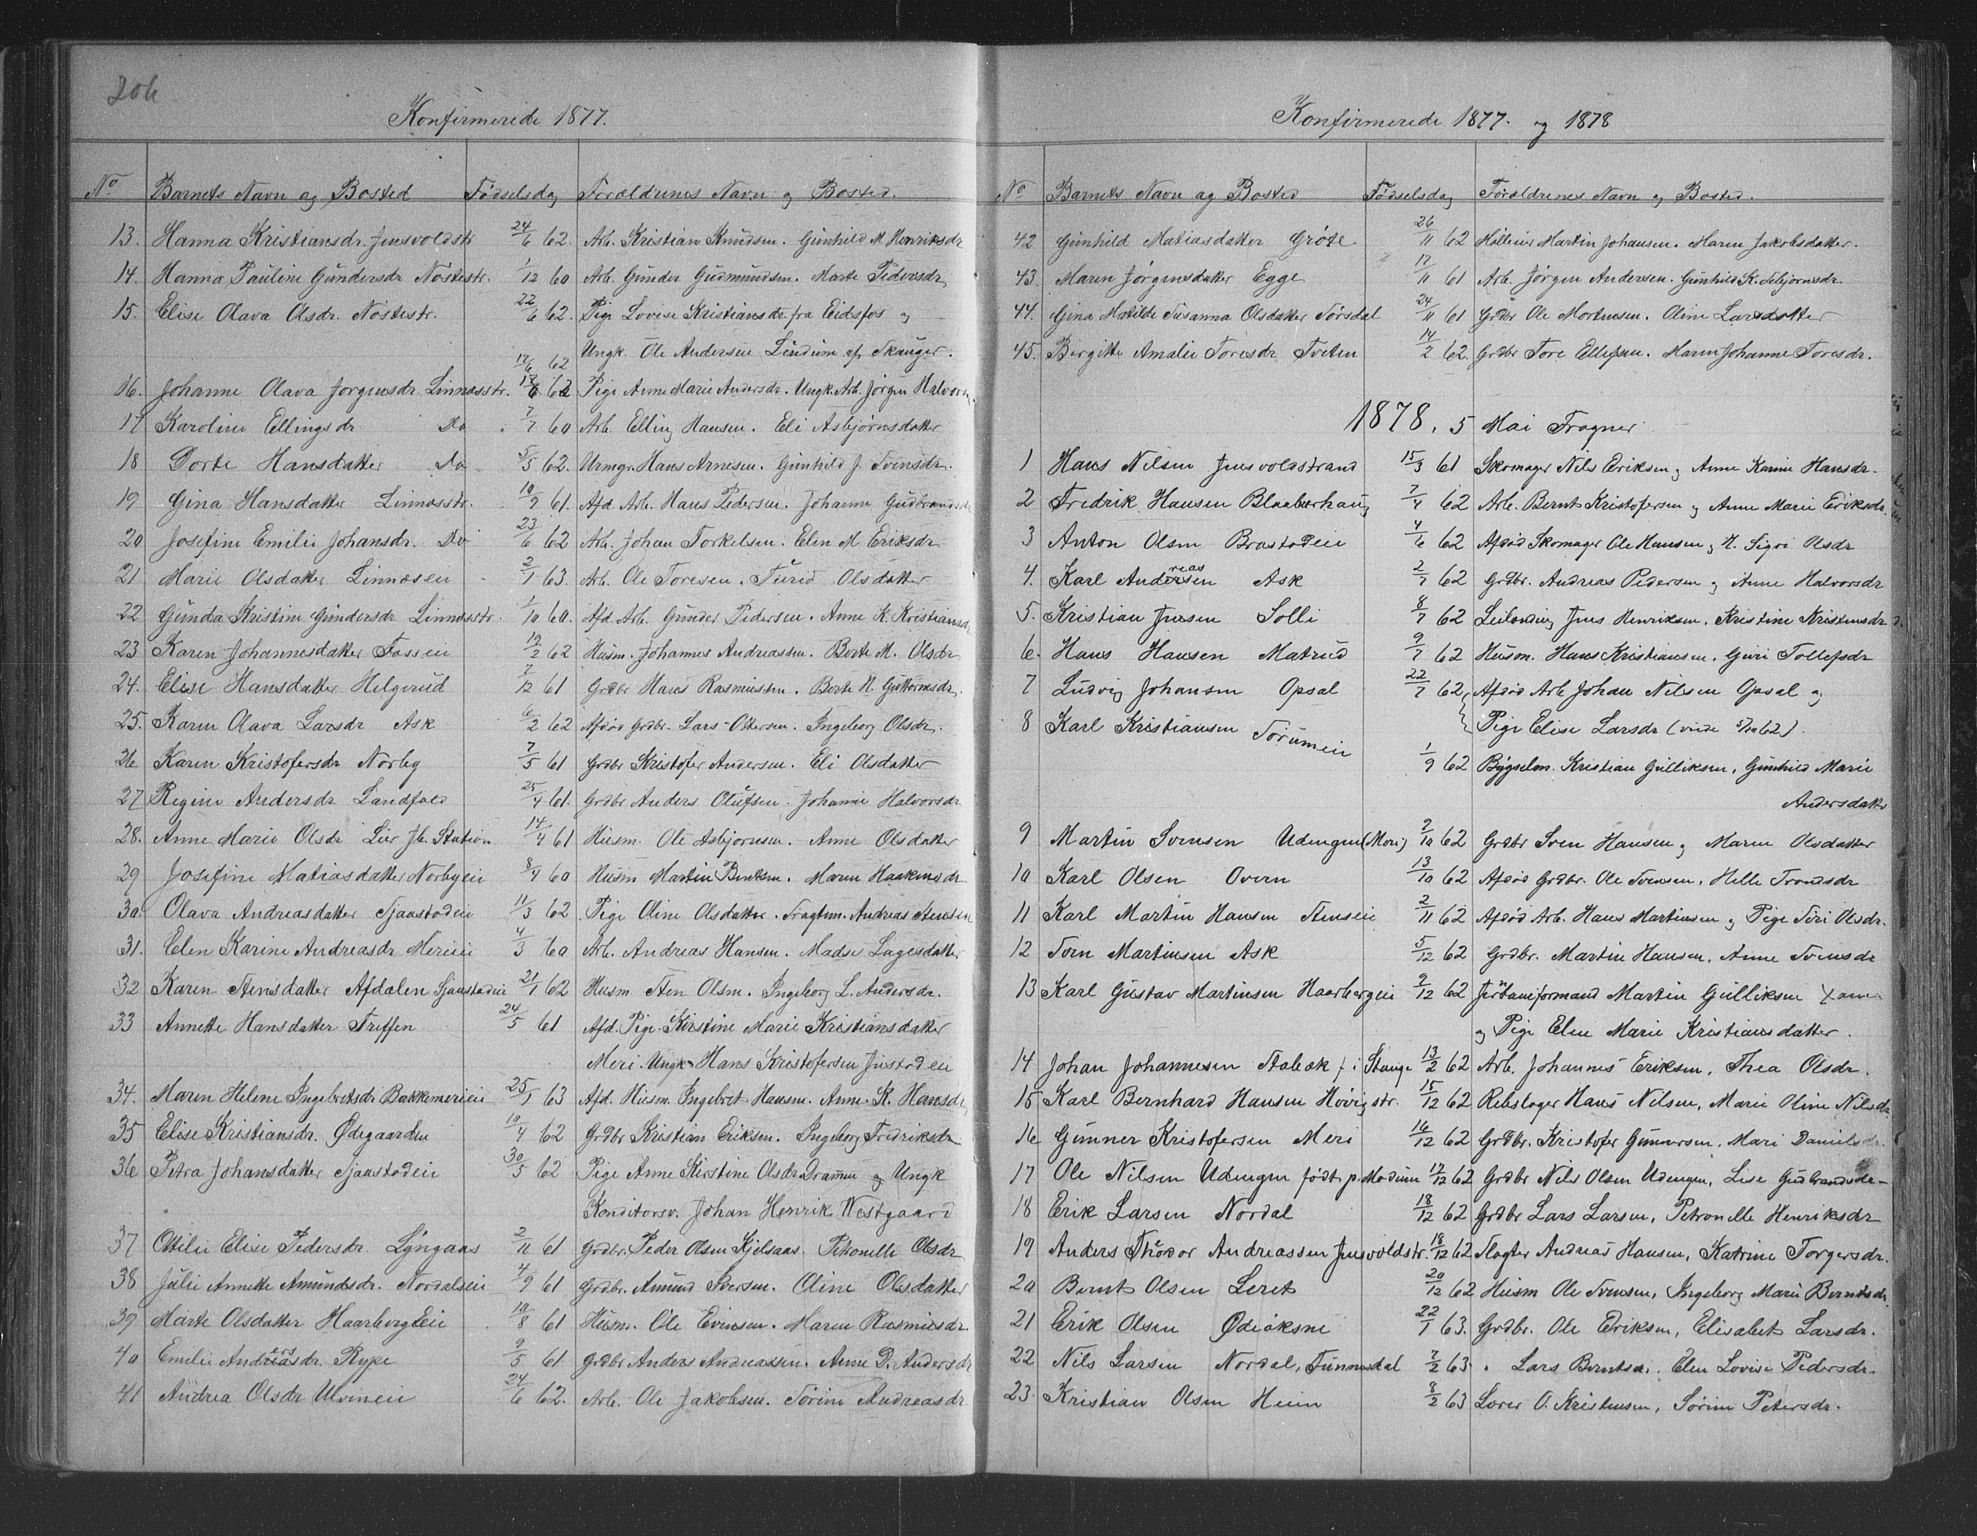 206
Konfirmerede 1877.
No Barnets Navn og Bosted Fødselsdag Forældrenes Navn og Bosted.
13. Hanna Kristiansdr. Jensvoldstr. 24/6 62. Arb. Kristian Knudsen. Gunhild M. Henriksdr.
14. Hanna Pauline Gundersdr Nøstestr. 1/12 60 Arb. Gunder Gudmundsen. Marte Pedersdr.
15. Elise Olava Olsdr. Nøstestr. 22/6 62. Pige Lovise Kristiansdr. fra Eidsfos og
17/6 62 Ungk. Ole Andersen Lindum af Skauger.
16. Johanne Olava Jørgensdr. Linnæsstr. 6 62 Pige Anne Marie Andersdr. Ungk. Arb. Jørgen Halvorsen
17 Karoline Ellingsdr Do 7/7 60 Arb. Elling Hansen. Eli Asbjørnsdatter
18 Dorte Hansdatter Do 5/5 62. Urmgr. Hans Arnesen. Gunhild J. Svensdr.
19 Gina Hansdatter Linnæsstr. 10/9 61. Afd. Arb. Hans Pedersen. Johanne Gudbrandsdr
20 Josefine Emilie Johansdr. Do 23/6 62 Arb. Johan Torkelsen. Elen M Eriksdr.
21 Marie Olsdatter Linnæseie 2/1 63. Arb. Ole Toresen. Turid Olsdatter
22 Gunda Kristine Gundersdr Linnæsstr. 1/10 60. Afd. Arb. Gunder Pedersen. Anne K. Kristiansdr
23 Karen Johannesdatter Fosseie 19/2 62 Husm. Johannes Andreassen. Berte M. Olsdr.
24. Elise Hansdatter Helgerud 7/12 61 Grdbr Hans Rasmussen. Berte H. Guttormsdr.
25. Karen Olava Larsdr Ask 6/2 62 Afdød Grdbr. Lars Ottersen. Ingeborg Olsdr.
26. Karen Kristofersdr Norby 7/5 61 Grdbr Kristofer Andersen. Eli Olsdatter
27 Regine Andersdr Landfald 25/4 61. Grdbr Anders Olufsen. Johanne Halvorsdr
28. Anne Marie Olsdr Lier Jb. Station 14/4 61 Husm. Ole Asbjørnsen. Anne Olsdatter
29 Josefine Matiasdatter Norbyeie 8/4 60 Husm Martin Bentsen. Maren Haakensdr
30. Olava Andreasdatter Sjaastadeie 11/3 62 Pige Oline Olsdatter. Fragtm. Andreas Stensen
31. Elen Karine Andreasdr Merieie 4/3 60 Arb. Andreas Hansen. Madse Lagesdatter
32 Karen Stensdatter Afdalen Sjaastadeie 21/1 62 Husm Sten Olsen. Ingeborg L. Andersdr.
33 Annette Hansdatter Treffen 24/5 61 Afd. Pige. Kirstine Marie Kristiansdatter
Meri. Ungk. Hans Kristofersen Justadeie
34. Maren Helene Ingebretsdr. Bakkemerieie 25/1 63 Afd. Husm. Ingebret Hansen. Anne K. Hansdr
35 Elise Kristiansdr. Ødegaarden 10/4 62 Grdbr Kristian Eriksen. Ingeborg Fredriksdr
36 Petra Johansdatter Sjaastadeie 30/5 62 Pige Anne Kirstine Olsdr. Drammen og Ungk
Konditorsv. Johan Henrik Westgaard
37 Ottilie Elise Pedersdr. Lyngaas 2/11 61 Grdbr. Peder Olsen Kjelsaas. Petronelle Olsdr
38 Julie Annette Amundsdr. Nordalseie 4/9 61 Grdbr. Amund Iversen. Oline Olsdatter
39 Marte Olsdatter Haarbergeie 10/8 61 Husm. Ole Evensen. Maren Rasmusdr.
40 Emilie Andersdr. Rype 9/5 61 Grdbr Anders Andreassen. Anne D. Andersdr
41 Andrea Olsdr Ulvineie 24/6 62. Arb. Ole Jakobsen. Torine Andreasdr.
Konfirmerede 1877. og 1878
No Barnets Navn og Bosted Fødselsdag Forældrenes Navn og Bosted.
42 Gunhild Matiasdatter Grøte 26/11 62 Martin Johansen. Maren Jakobsdatter.
43. Maren Jørgensdatter Egge 17/11 61 Arb. Jørgen Andersen. Gunhild K.
44. Gina Matilde Susanna Olsdatter Torsdal 24/11 61 Grdbr Ole Mortensen. Oline Larsdatter
45. Birgitte Amalie Toresdr. Tveten 14/2 62. Grdbr Tore Ellefsen. Maren Johanne Toresdr.
1878. 5 Mai Frogner
1 Hans Nilsen Jensvoldstrand 15/3 61 Skomager Nils Eriksen og Anne Karine Hansdr.
2 Fredrik Hansen Blaabærhaug 7/4 62 Arb. Bernt Kristofersen og Anne Marie Eriksdr.
3 Anton Olsen Brastadeie 4/6 62 Afdød Skomager Ole Hansen og H. Sigri Olsdr
4. Karl Andreassen Ask 2/7 62 Grdbr. Andreas Pedersen og Anne Halvorsdr
5. Kristian Jensen Solli 8/7 62 Leilænding Jens Henriksen. Kristine Kristensdr
6. Hans Hansen Matrud 9/7 62 Husm. Hans Kristiansen. Guri Tollefsdr
7 Ludvig Johansen Opsal 22/7 62 Afdød Arb. Johan Nilsen Opsal og
Pige Elise Larsdr (viede 5/10 62).
8 Karl Kristiansen Torumeie 1/9 62 Bygselm. Kristian Gulliksen, Gunhild Marie
Andersdatter
9 Martin Svensen Udengen (Meri) 2/10 62 Grdbr Sven Hansen og Maren Olsdatter
10 Karl Olsen Overn 13/10 62 Afdød Grdbr. Ole Svensen. Helle Trondsdr
11 Karl Martin Hansen Stenseie 2/11 62 Afdød Arb. Hans Martinsen og Pige Siri Olsdr.
12 Sven Martinsen Ask 5/12 62 Grdbr. Martin Hansen, Anne Svensdr
13 Karl Gustav Martinsen Haarbergeie 2/12 62 Jerbaneformand Martin Gulliksen
og Pige Elen Marie Kristiansdatter.
14 Johan Johannesen Stabæk f. i Stange 13/2 62 Arb. Johannes Eriksen, Thea Olsdr.
15 Karl Bernhard Hansen Høvigstr. 15/12 62 Rebslager Hans Nilsen, Marie Oline Nilsdr
16 Gunner Kristofersen Meri 16/12 62 Grdbr. Kristofer Gunnersen. Mari Danielsdr.
17 Ole Nilsen Udengen født p. Modum 17/12 62 Grdbr Nils Olsen Udengen, Lise Gudbrandsdr
18 Erik Larsen Nordal 18/12 62 Grdbr Lars Larsen, Petronelle Henriksdr
19 Anders Theodor Andreassen Jensvoldstr. 18/12 62 Slagter Andreas Hansen, Katrine Torgersdr.
20 Bernt Olsen Leret 20/12 62 Husm Ole Svensen, Ingeborg Marie Berntsdr.
21 Erik Olsen Ødeaksne 22/1 63. Grdbr. Ole Eriksen, Elisabet Larsdr.
22 Nils Larsen Nordal, Tunnesdal 7/2 63 " Lars Berntsen. Elen Lovise Pedersdr.
23. Kristian Olsen Heim 8/2 63 O. Kristensen, Sørine Petersdr.